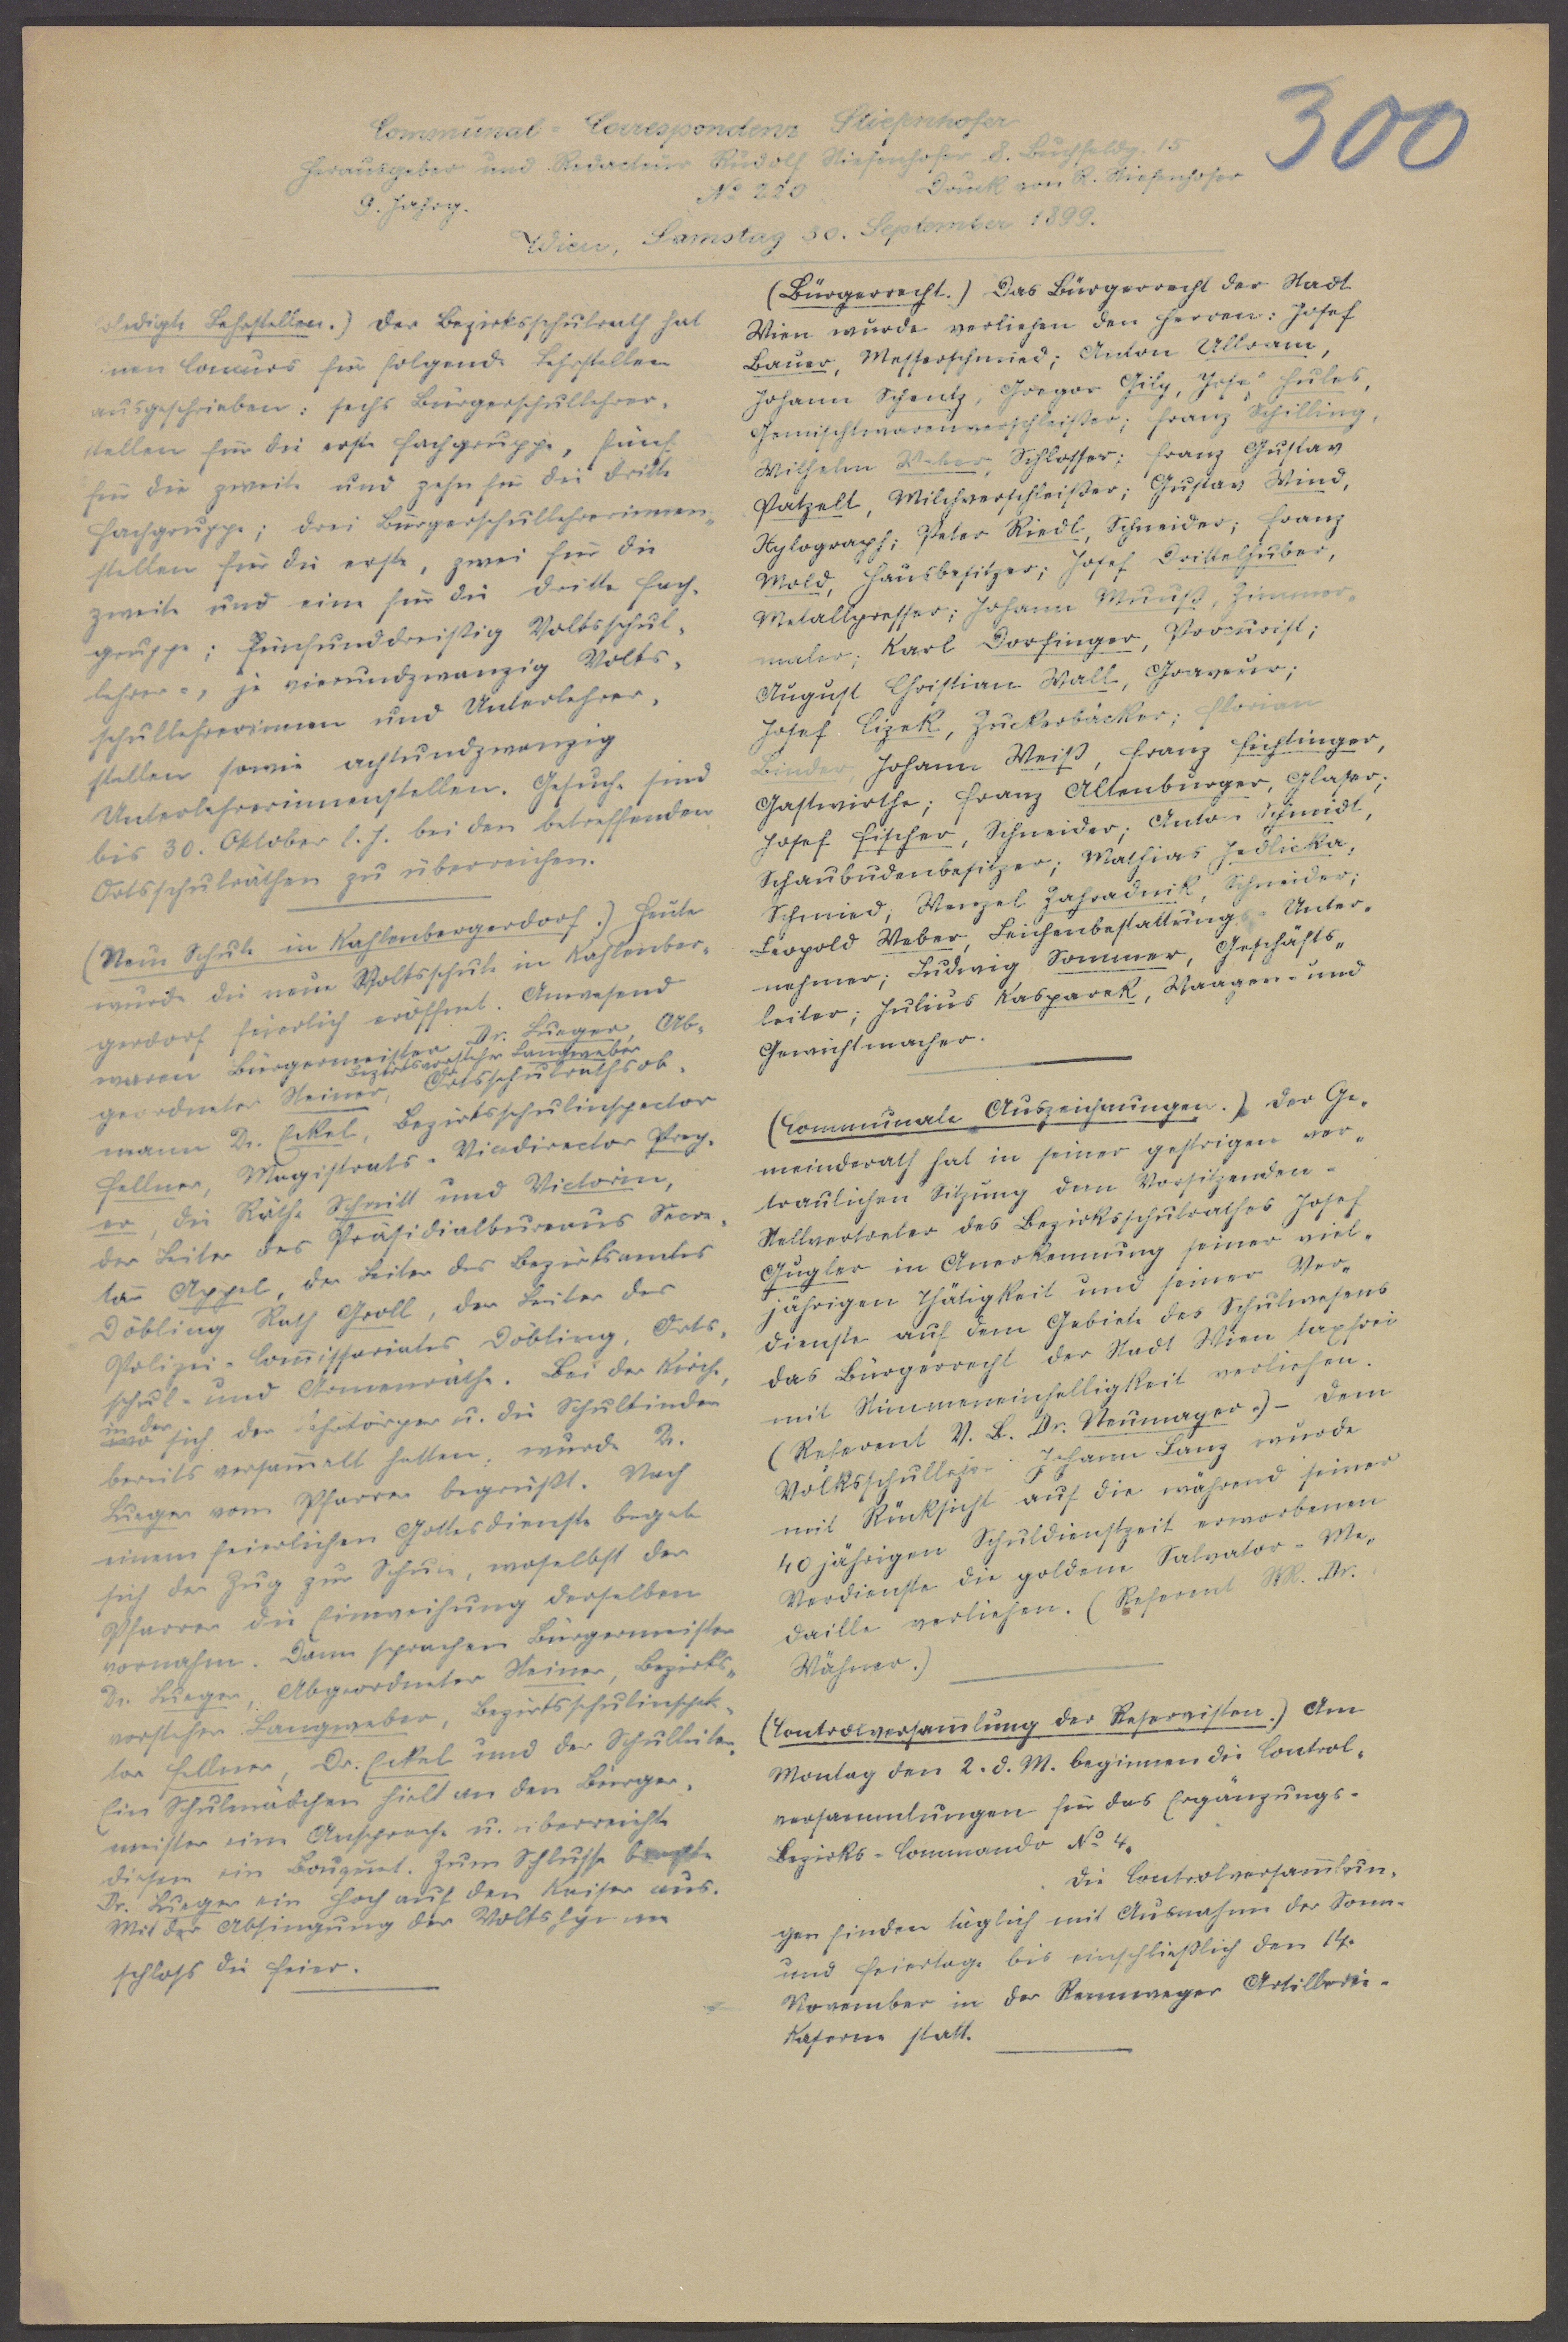 300
Communal-Correspondenz Stiefenhofer
Herausgeber und Redacteur Rudolf Stiefenhofer 8. Buchfeldg. 15
9. Jahrg. No 220 Druck von R. Stiefenhofer
Wien, Samstag 30. September 1899.
ledigte Lehrstellen.) Der Bezirksschulrath hat
nen Concurs für folgende Lehrstellen
ausgeschrieben: sechs Bürgerschullehrer-
stellen für die erste Fachgruppe, fünf
für die zweite und zehn für die dritte
Fachgruppe; drei Bürgerschullehrerinnen-
stellen für die erste, zwei für die
zweite und eine für die dritte Fach-
gruppe; fünfunddreißig Volksschul-
lehrer-, je vierundzwanzig Volks-
schullehrerinnen und Unterlehrer-
stellen sowie achtundzwanzig
Unterlehrerinnenstellen. Gesuche sind
bis 30. Oktober l. J. bei den betreffenden
Ortsschulräthen zu überreichen.
(Neue Schule in Kahlenbergerdorf.) Heute
wurde die neue Volksschule in Kahlenber-
gerdorf feierlich eröffnet. Anwesend
waren Bürgermeister Dr. Lueger, Ab-
Bezirksvorsteher Langweber
geordneter Steiner, Ortsschulrathsob-
mann Dr. Eckel, Bezirksschulinspector
Fellner, Magistrats-Vicedirector Prey-
er, die Räthe Schmitt und Victorin,
der Leiter des Präsidialbureaus Secre-
tär Appel, der Leiter des Bezirksamtes
Döbling Rath Groll, der Leiter des
Polizei-Com̅issariates Döbling, Orts-
schul- und Armenräthe. Bei der Kirche,
in der
sich der Lehrkörper u. die Schulkinder
bereits versam̅elt hatten, wurde Dr.
Lueger vom Pfarrer begrüßt. Nach
einem feierlichen Gottesdienste begab
sich der Zug zur Schule, woselbst der
Pfarrer die Einweihung derselben
vornahm. Dann sprachen Bürgermeister
Dr. Lueger, Abgeordneter Steiner, Bezirks-
vorsteher Langweber, Bezirksschulinspek-
tor Fellner, Dr. Eckel und der Schulleiter.
Ein Schulmädchen hielt an den Bürger-
meister eine Ansprache u. überreichte
diesem ein Bouquet. Zum Schlusse brachte
Dr. Lueger ein Hoch auf den Kaiser aus.
Mit der Absingung der Volkshymne
schloß die Feier.
(Bürgerrecht.) Das Bürgerrecht der Stadt
Wien wurde verliehen den Herren: Josef
Bauer, Messerschmied; Anton Ullram,
Johann Schentz, Gregor Gily, Josef Hules,
Gemischtwarenverschleißer; Franz Schilling,
Wilhelm Weber, Schlosser; Franz Gustav
Patzelt, Milchverschleißer; Gustav Wind,
Xylograph; Peter Riedl, Schneider; Franz
Mold, Hausbesitzer; Josef Drittelhuber,
Metallpresser; Johann Muuß, Zimmer-
maler; Karl Dorfinger, Procurist;
August Christian Wall, Graveur;
Josef Cizek, Zuckerbäcker; Florian
Binder, Johann Weiß, Franz Fichtinger,
Gastwirthe; Franz Altenburger, Glaser;
Josef Fischer, Schneider; Anton Schmidt,
Schaubudenbesitzer; Mathias Jedlicka,
Schmied; Wenzel Zahradnik, Schneider;
Leopold Weber, Leichenbestattungs-Unter-
nehmer; Ludwig Sommer, Geschäfts-
leiter; Julius Kasparek, Waagen- und
Gewichtmacher.
(Communale Auszeichnungen.) Der Ge-
meinderath hat in seiner gestrigen ver-
traulichen Sitzung dem Vorsitzenden-
Stellvertreter des Bezirksschulrathes Josef
Gugler in Anerkennung seiner viel-
jährigen Thätigkeit und seiner Ver-
dienste auf dem Gebiete des Schulwesens
das Bürgerrecht der Stadt Wien taxfrei
mit Stimmeneinhelligkeit verliehen.
(Referent V. B. Dr. Neumayer.) - Dem
Volksschullehrer Johann Lanz wurde
mit Rücksicht auf die während seiner
40 jährigen Schuldienstzeit erworbenen
Verdienste die goldene Salvator-Me-
daille verliehen. (Referent StR. Dr.
Wähner.)
(Controlversam̅lung der Reservisten.) Am
Montag den 2. d. M. beginnen die Control-
versammlungen für das Ergänzungs-
Bezirks-Commando No 4.
Die Controlversam̅lun-
gen finden täglich mit Ausnahme der Sonn-
und Feiertage bis einschließlich den 14.
November in der Rennweger Artillerie-
Kaserne statt.